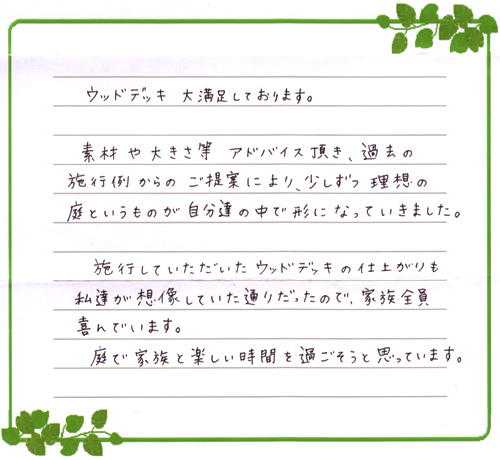 ウッドデッキ 大満足しております。
素材や大きさ等 アドバイス頂き、過去の
施行例からのご提案により、少しずつ 理想の
庭というものが自分達の中で形になっていきました。
施行していただいたウッドデッキの仕上がりも
私達が想像していた通りだったので、家族全員
喜んでいます。
庭で家族と楽しい時間を過ごそうと思っています。